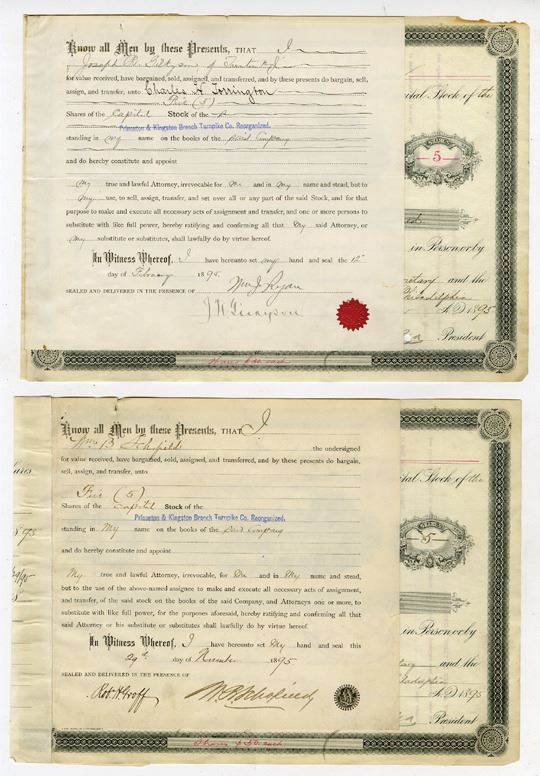 Know all Men by these Presents, THAT I
Joseph
for value received, have bargained, sold, assigned, and transferred, and by these presents do bargain, sell,
assign, and transfer, unto Charles H. Torrington
Five (5)
Shares of the Capital Stock of the
Princeton & Kingston Branch Turnpike Co. Reorganized.
standing in my name on the books of the said Company
and do hereby constitute and appoint
my true and lawful Attorney, irrevocable for me and in my name and stead, but to
my use, to sell, assign, transfer, and set over all or any part of the said Stock, and for that
purpose to make and execute all necessary acts of assignment and transfer, and one or more persons to
substitute with like full power, hereby ratifying and confirming all that my said Attorney, or
my substitute or substitutes, shall lawfully do by virtue hereof.
In Witness Whereof, I have hereunto set my hand and seal the 12
day of February 1895.
SEALED AND DELIVERED IN THE PRESENCE OF
Wm J. Ryan
ital Stock of the
5
in Person or by
retary and the
Philadelphia
A.D. 1895
President
Know all Men by these Presents, THAT I
Wm B. Schofield the undersigned
for value received, have bargained, sold, assigned, and transferred, and by these presents do bargain,
sell, assign, and transfer, unto
Five (5)
Shares of the Capital Stock of the
Princeton & Kingston Branch Turnpike Co. Reorganized.
standing in My name on the books of the Said Company
and do hereby constitute and appoint
My true and lawful Attorney, irrevocable, for Me and in My name and stead,
but to the use of the above-named assignee to make and execute all necessary acts of assignment,
and transfer, of the said stock on the books of the said Company, and Attorneys one or more, to
substitute with like full power, for the purposes aforesaid, hereby ratifying and confirming all that
said Attorney or his substitute or substitutes shall lawfully do by virtue hereof.
In Witness Whereof, I have hereunto set My hand and seal this
29th day of November 1895
SEALED AND DELIVERED IN THE PRESENCE OF
Robt. H. Groff
W. B. Schofield
ares
895
ital Stock of the
5
in Person or by
etary and the
ladelphia
A.D. 1895
President